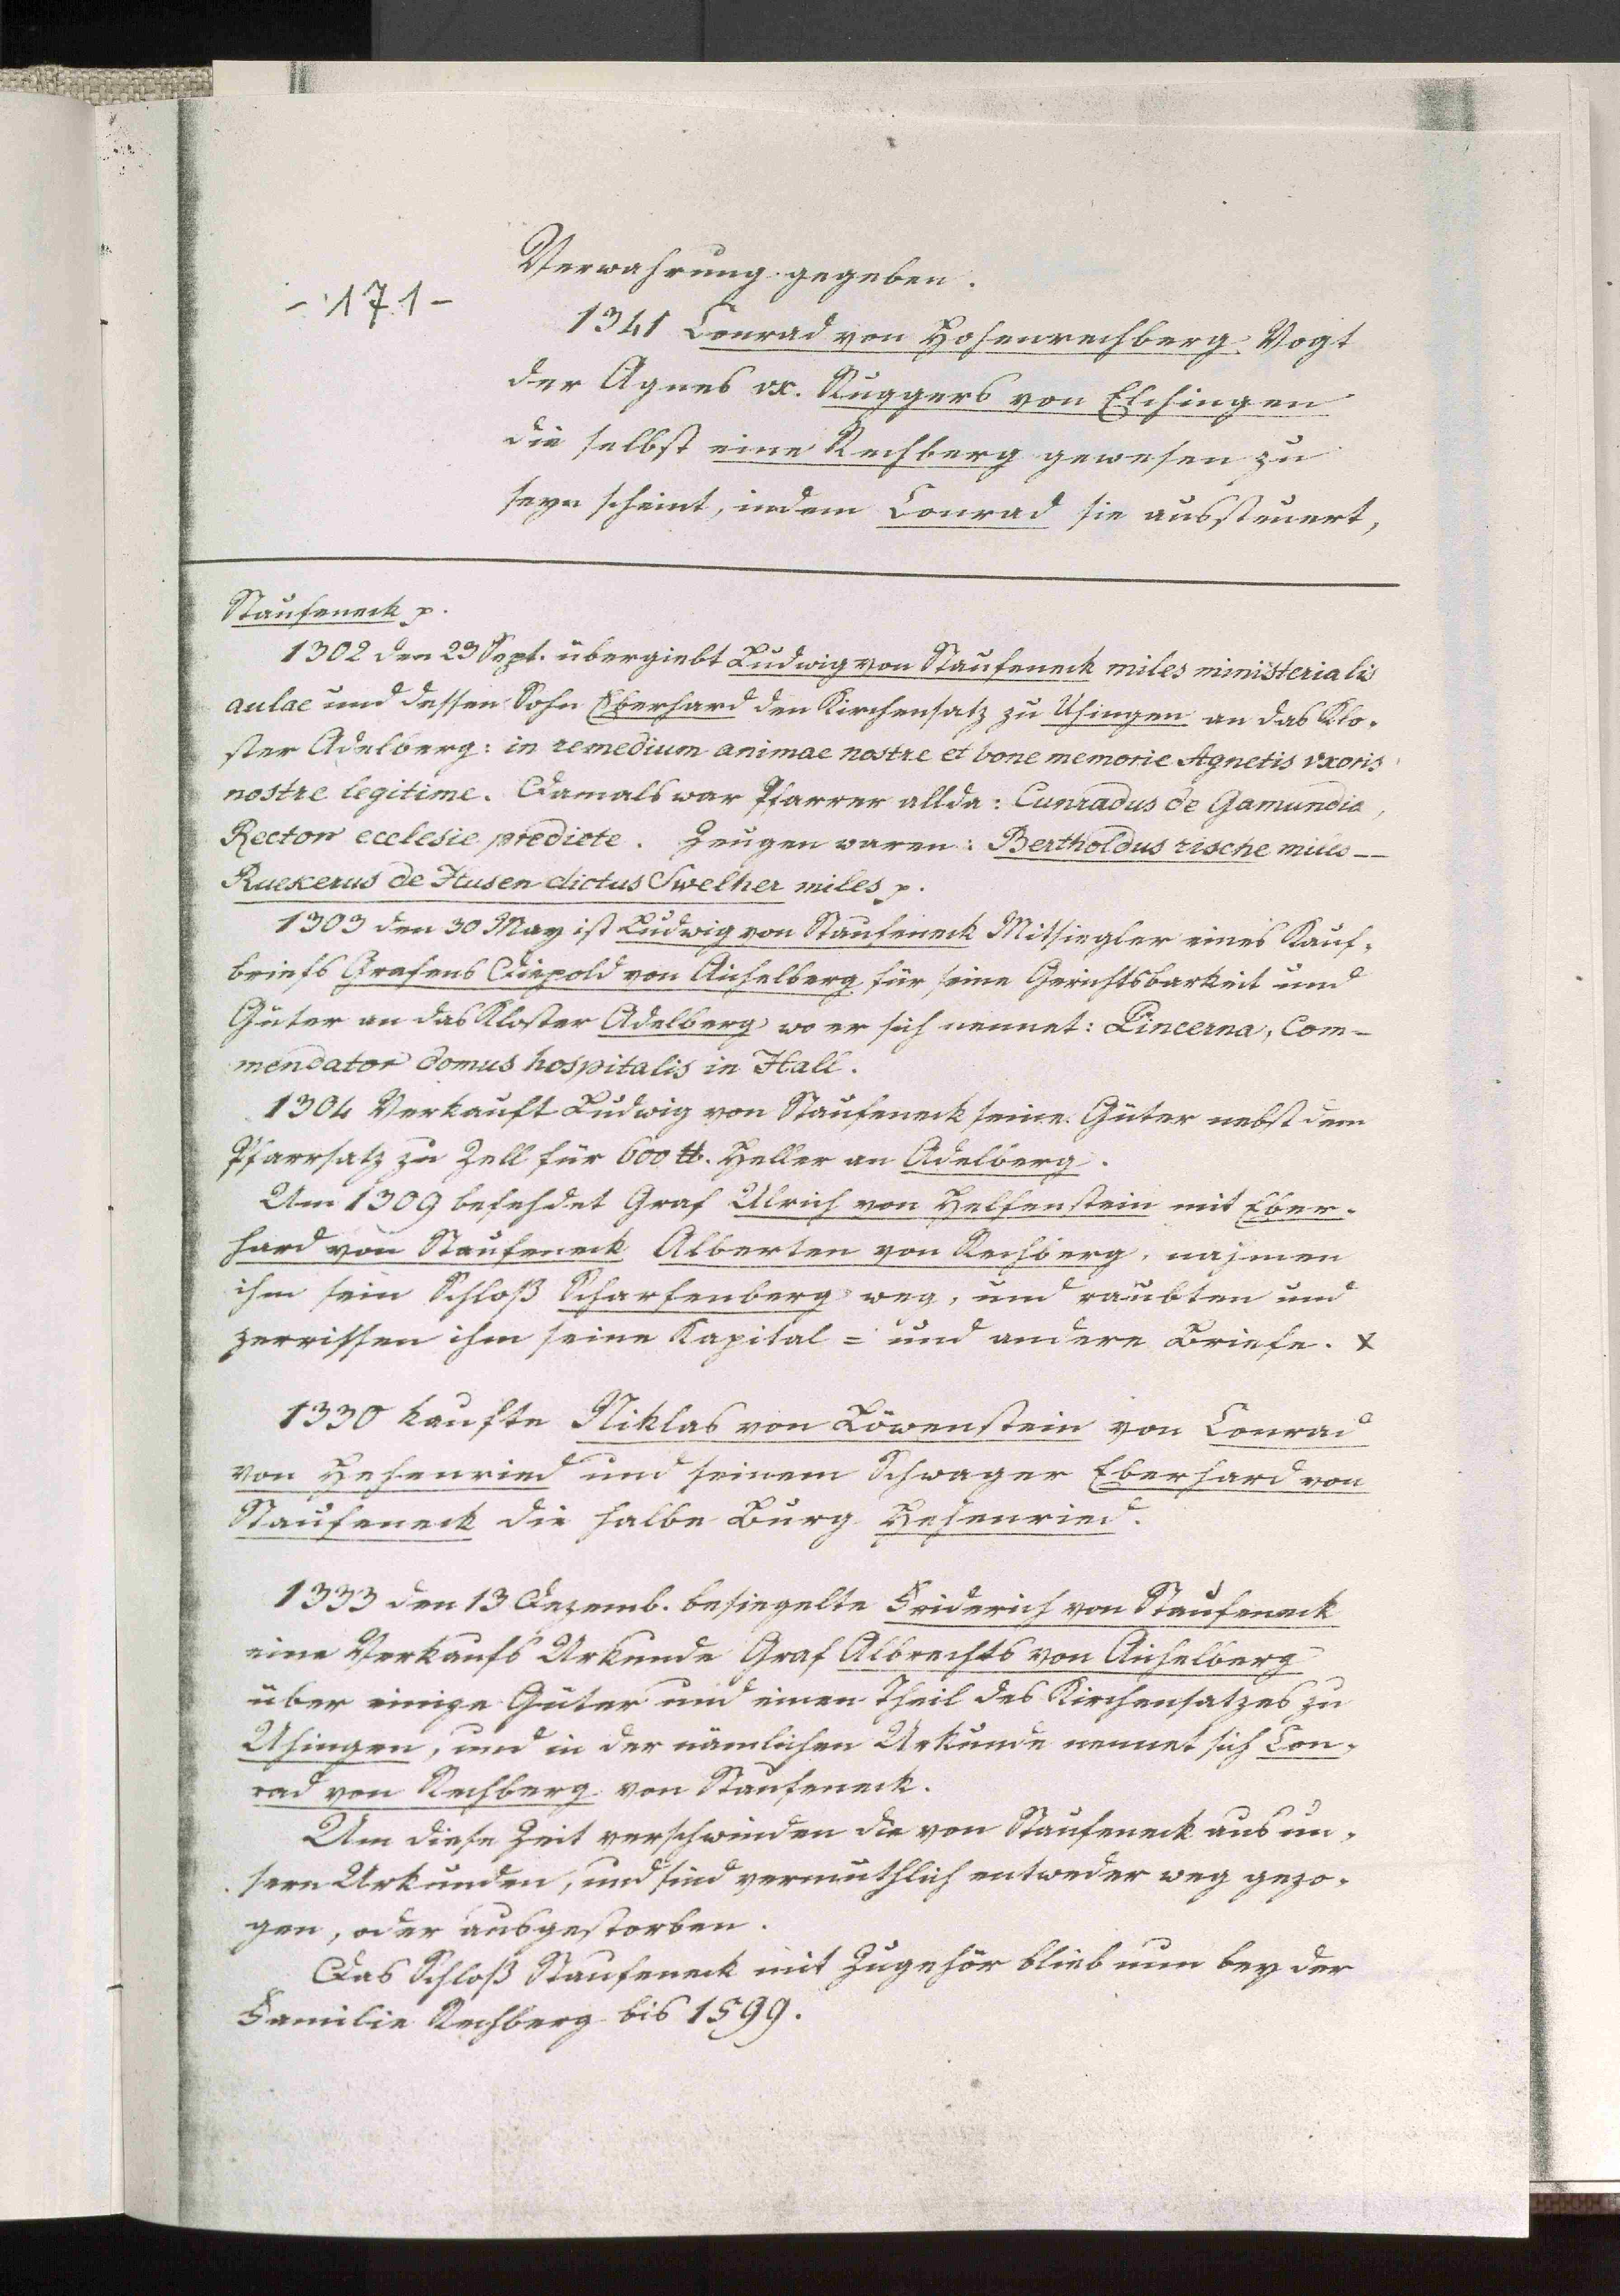 Verwahrung gegeben.
- 171 -
1341 Conrad von Hohenrechberg Vogt
der Agnes ux. Ruggers von Elchingen
die selbst eine Rechberg gewesen zu
seyn scheint, indem Conrad sie aussteuert,
Staufeneck p.
1302 den 23 Sept. übergiebt Ludwig von Staufeneck miles ministerialis
aulae und dessen Sohn Eberhard den Kirchensatz zu Uhingen an das Klo-
ster Adelberg: in remedium animae nostre et bone memorie Agnetis uxoris
nostre legitime. Damals war Pfarrer allda: Cunradus de Gamundia,
Rector ecclesie predicte. Zeugen waren: Bertholdus rische miles --
Ruckerus de Husen dictus Swelher miles p.
1303 den 30 May ist Ludwig von Staufeneck Mitsiegler eines Kauf-
briefs Grafens Diepold von Aichelberg für seine Gerichtsbarkeit und
Güter an das Kloster Adelberg wo er sich nennet: Pincerna, Com-
mendator domus hospitalis in Hall.
1304 Verkauft Ludwig von Staufeneck seine Güter nebst dem
Pfarrsatz zu Zell für 600 ℔. Heller an Adelberg.
Um 1309 befehdet Graf Ulrich von Helfenstein mit Eber-
hard von Staufeneck Alberten von Rechberg, nahmen
ihm sein Schloß Scharfenberg weg, und raubten und
zerrissen ihm seine Kapital = und andere Briefe. x
1330 kaufte Niklas von Löwenstein von Conrad
von Hehenried und seinem Schwager Eberhard von
Staufeneck die halbe Burg Hehenried.
1333 den 13 Dezemb. besiegelte Friderich von Staufeneck
eine Verkaufs Urkunde Graf Albrechts von Aichelberg
über einige Güter und einen Theil des Kirchensatzes zu
Uhingen, und in der nämlichen Urkunde nennet sich Con-
rad von Rechberg von Staufeneck.
Um diese Zeit verschwinden die von Staufeneck aus un-
sern Urkunden, und sind vermuthlich entweder weg gezo-
gen, oder ausgestorben.
Das Schloß Staufeneck mit Zugehör blieb nun bey der
Familie Rechberg bis 1599.